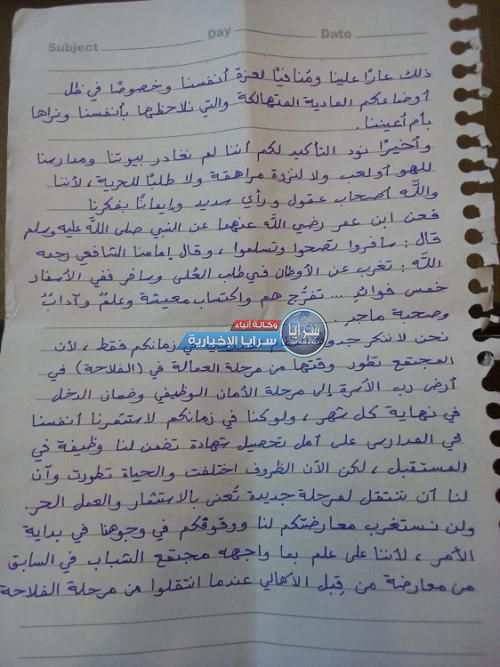 Subject
Day
Date
ذلك عارًا علينا ومُنافيًا لعزة أنفسنا وخصوصًا في ظل
أوضاعكم المادية المتهالكة والتي نلاحظها بأنفسنا ونراها
بأم أعيننا.
وأخيرًا نود التأكيد لكم أننا لم نغادر بيوتنا ومدارسنا
للهو أو لعب ولا لنزوة مراهقة ولا طلبًا للحرية، لأننا
والله أصحاب عقول ورأي سديد وإيمانًا بفكرنا
فعن ابن عمر رضي الله عنهما عن النبي صلى الله عليه وسلم
قال: سافروا تصحوا وتسلموا، وقال إمامنا الشافعي رحمه
الله: تغرب عن الأوطان في طلب العُلى وسافر ففي الأسفار
خمس فوائدٍ ... تفرُّج هم واكتساب معيشة وعلمٌ وآدابٌ
وصحبة ماجد.
وكالة أنباء
سرايا الإخبارية
سرايا
نحن لا ننكر جدوى في زمانكم فقط، لأن
المجتمع تطور وقتها من مرحلة العمالة في (الفلاحة) في
أرض رب الأسرة إلى مرحلة الأمان الوظيفي وضمان الدخل
في نهاية كل شهر، ولو كنا في زمانكم لاستثمرنا أنفسنا
في المدارس على أمل تحصيل شهادة تضمن لنا وظيفة في
المستقبل، لكن الآن الظروف اختلفت والحياة تطورت وآن
لنا أن ننتقل لمرحلة جديدة تُعنى بالاستثمار والعمل الحر.
ولن نستغرب معارضتكم لنا ووقوفكم في وجوهنا في بداية
الأمر، لأننا على علم بما واجهه مجتمع الشباب في السابق
من معارضة من قِبل الأهالي عندما انتقلوا من مرحلة الفلاحة